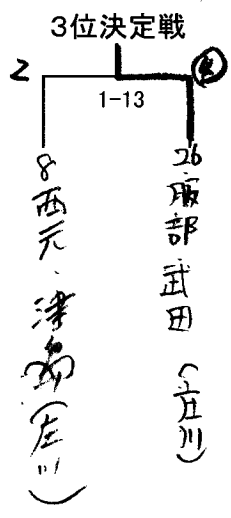 3位決定戦
2 ③
1-13
8 西元・津島(庄川)
26 服部 武田 (庄川)